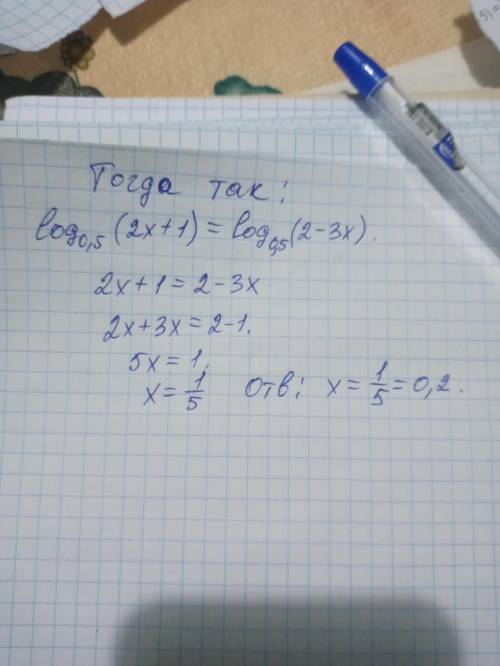 Тогда так:
log₀,₅(2x+1) = log₀,₅(2-3x).
2x+1 = 2-3x
2x+3x = 2-1.
5x = 1.
x = 1/5 Отв: x = 1/5 = 0,2.